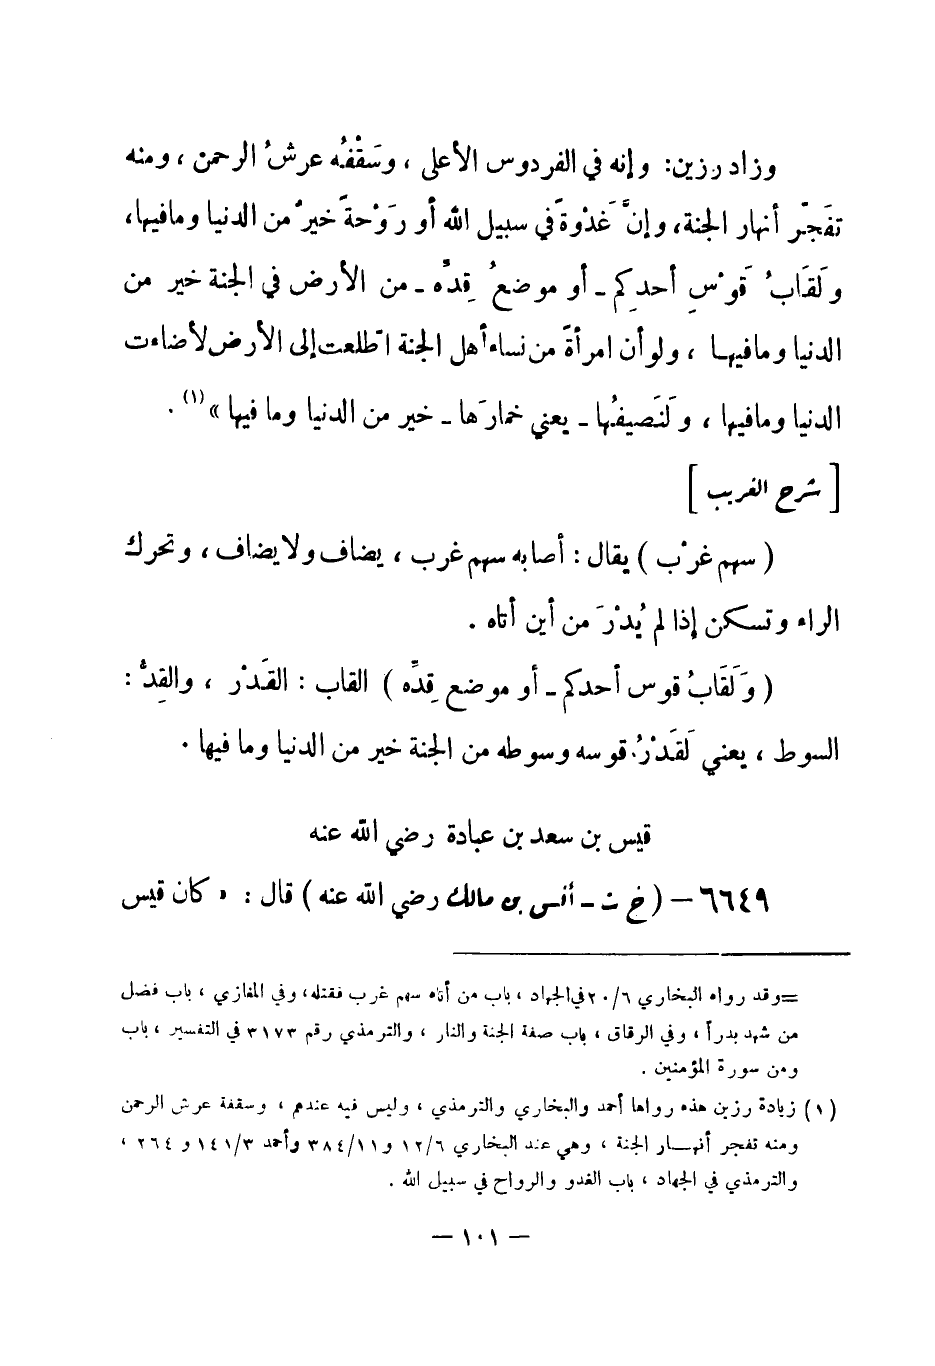 وزاد رزين: وإنه في الفردوس الأعلى ، وسَقْفُه عرشُ الرحمن ، ومنه
تفَجَّر أنهار الجنة، وإنَّ غَدْوةً في سبيل الله أو رَوْحةً خيرٌ من الدنيا ومافيها،
ولَقَابُ قَوْسِ أحدِكم ـ أو موضعُ قِدِّه ـ من الأرض في الجنة خير من
الدنيا ومافيها ، ولو أن امرأةً من نساء أهل الجنة اطَّلعت إلى الأرض لأضاءت
الدنيا ومافيها ، ولَنَصيفُها ـ يعني خمارَها ـ خير من الدنيا وما فيها » (١) .
[ شرح الغريب ]
( سهم غرْب ) يقال : أصابه سهم غرب ، يضاف ولا يضاف ، وتحرك
الراء وتسكن إذا لم يُدْرَ من أين أتاه .
( وَلَقَابُ قوس أحدكم ـ أو موضع قِدِّه ) القاب : القَدْر ، والقِدُّ :
السوط ، يعني لَقَدْرُ قوسه وسوطه من الجنة خير من الدنيا وما فيها .
قيس بن سعد بن عبادة رضي الله عنه
٦٦٤٩ – ( خ ت ـ أنس بن مالك رضي الله عنه ) قال : « كان قيس
=وقد رواه البخاري ٢٠/٦ في الجهاد ، باب من أتاه سهم غرب فقتله، وفي المغازي ، باب فضل
من شهد بدراً ، وفي الرقاق ، باب صفة الجنة والنار ، والترمذي رقم ٣١٧٣ في التفسير ، باب
ومن سورة المؤمنين .
(١) زيادة رزين هذه رواها أحمد والبخاري والترمذي ، وليس فيه عندهم ، وسقفة عرش الرحمن
ومنه تفجر أنهـــار الجنة ، وهي عند البخاري ١٢/٦ و ٣٨٤/١١ وأحمد ١٤١/٣ و ٢٦٤ ،
والترمذي في الجهاد ، باب الغدو والرواح في سبيل الله .
— ١٠١ —